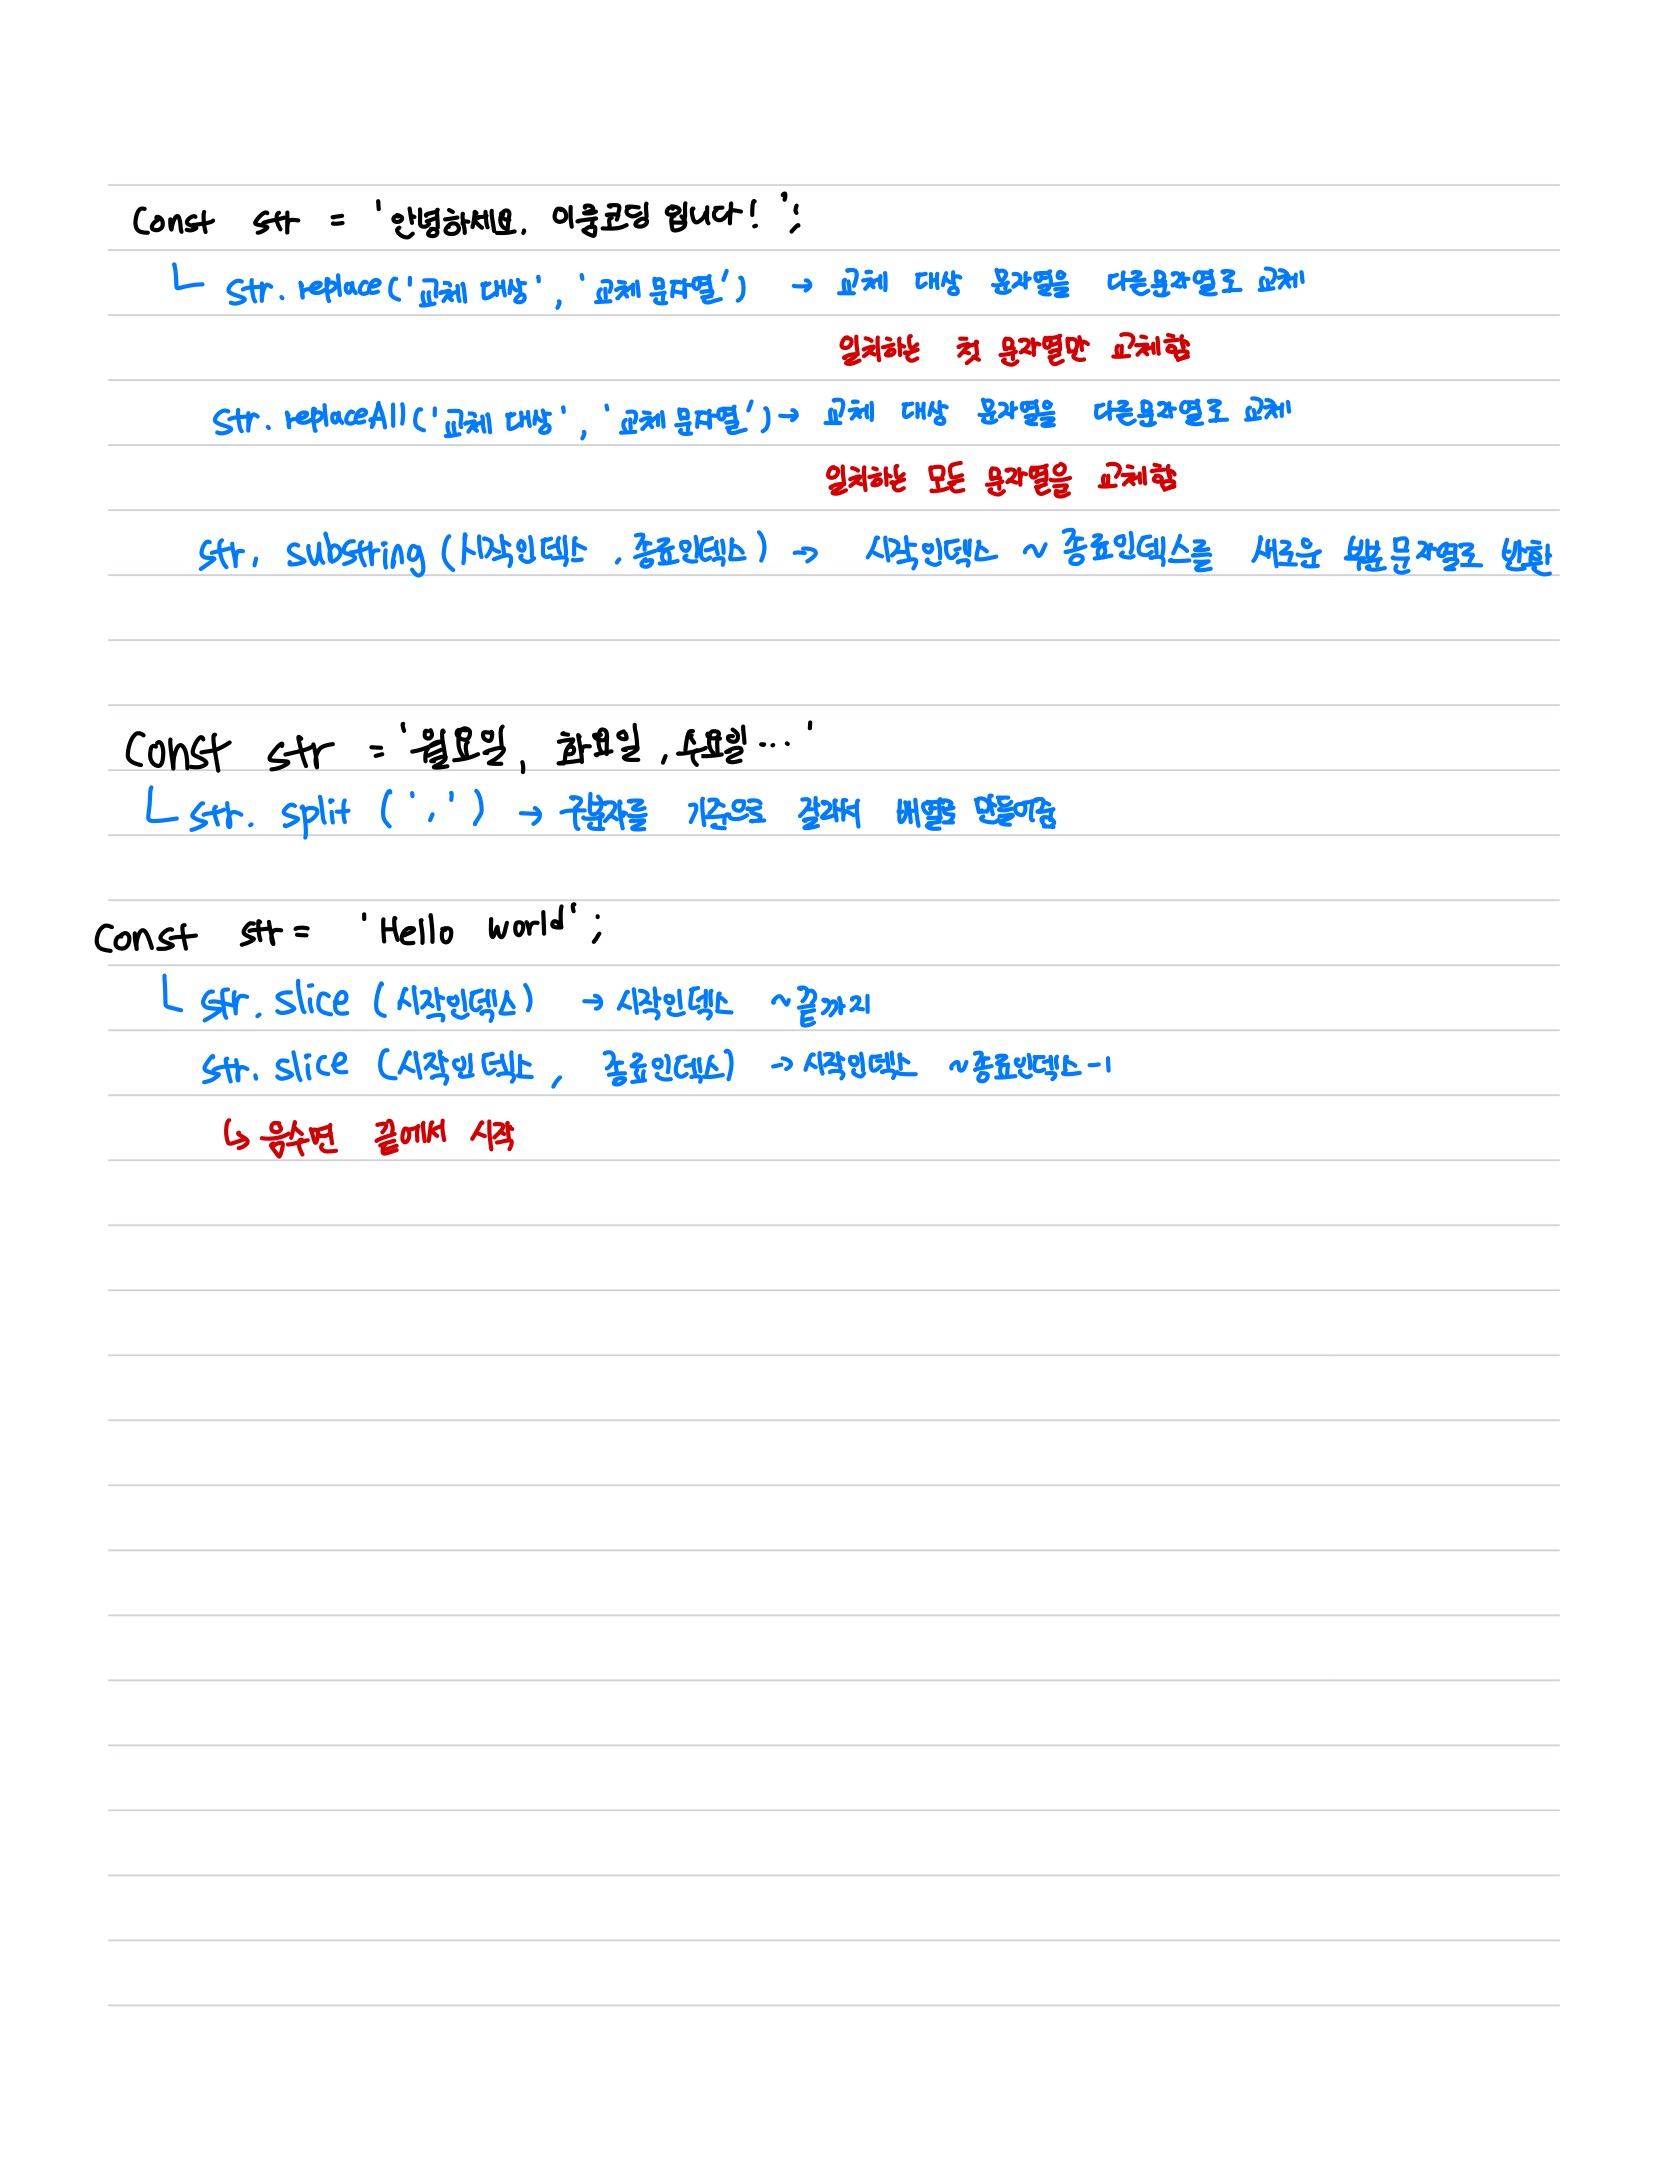 Const str = '안녕하세요. 이룸코딩 입니다! ';
str. replace('교체 대상', '교체 문자열') → 교체 대상 문자열을 다른문자열로 교체
일치하는 첫 문자열만 교체함
str. replaceAll('교체 대상', '교체 문자열') → 교체 대상 문자열을 다른문자열로 교체
일치하는 모든 문자열을 교체함
str. substring (시작인덱스 , 종료인덱스) → 시작인덱스 ~ 종료인덱스를 새로운 부분문자열로 반환
Const str = '월요일, 화요일 , 수요일 ... '
str. split (',') → 구분자를 기준으로 잘라서 배열로 만들어줌
Const str = 'Hello world';
str. slice (시작인덱스) → 시작인덱스 ~끝까지
str. slice (시작인덱스 , 종료인덱스) → 시작인덱스 ~종료인덱스-1
↳ 음수면 끝에서 시작